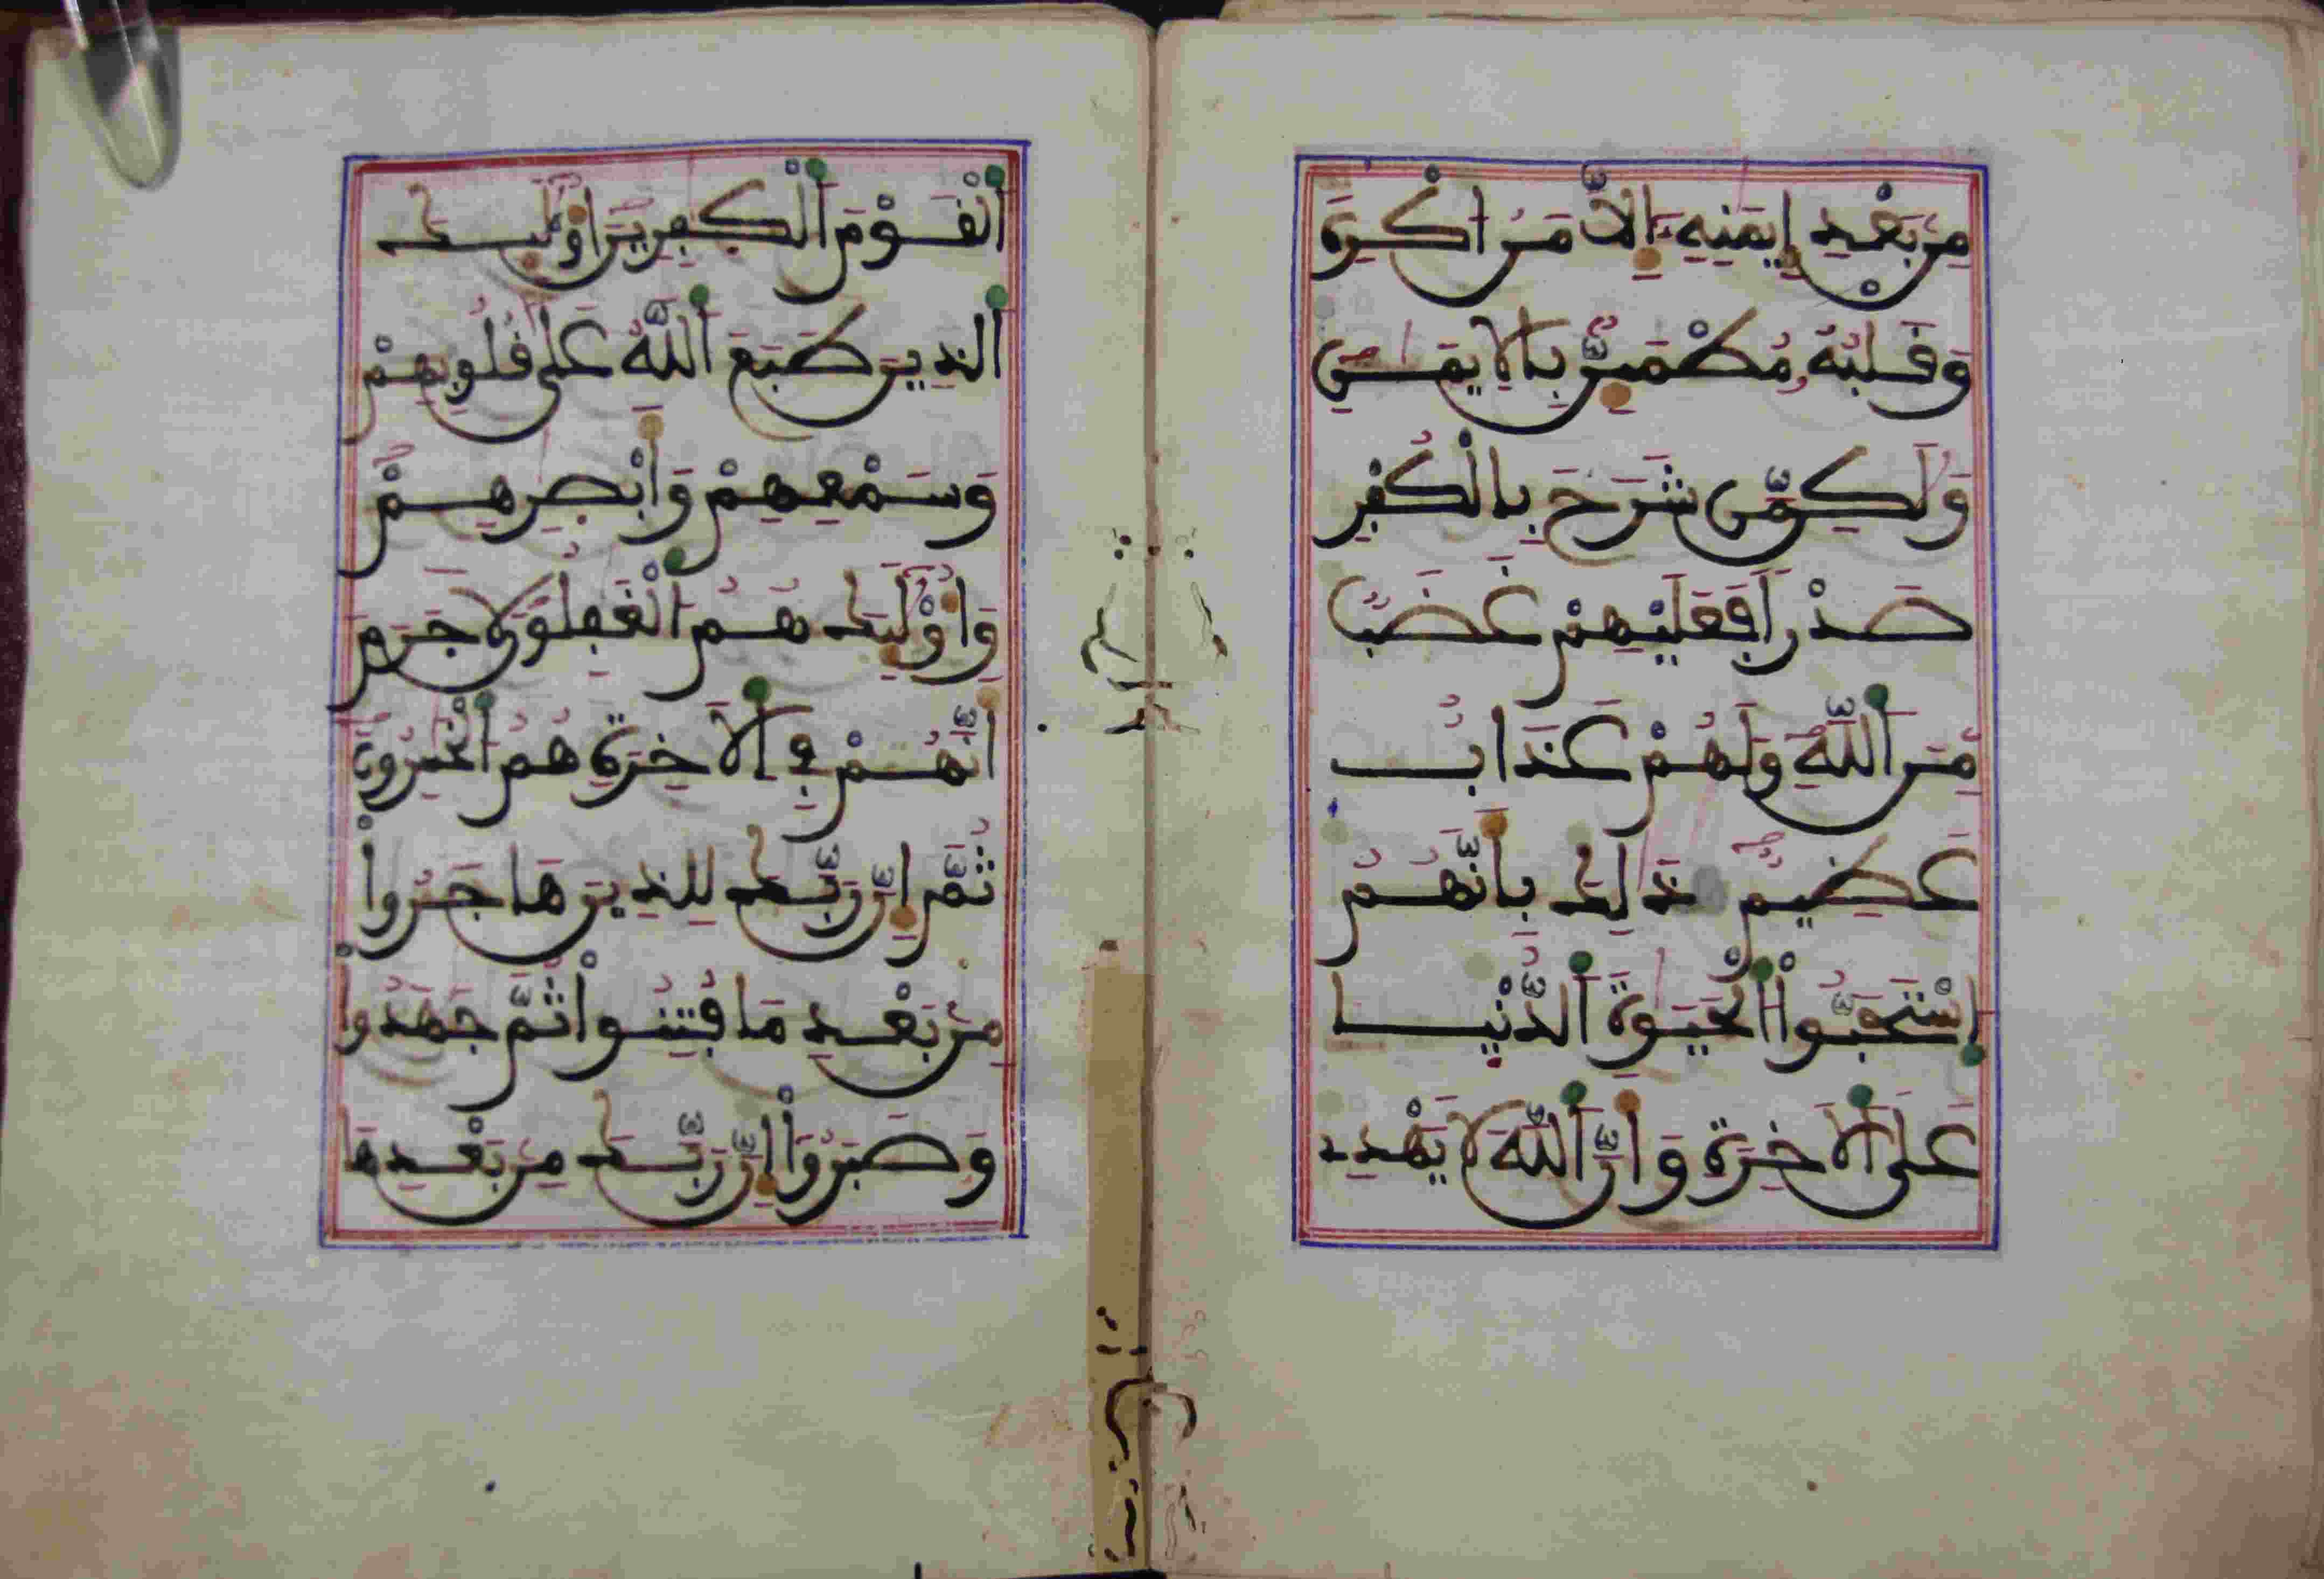 مِنۢ بَعْدِ إِيمَٰنِهِۦٓ إِلَّا مَنُ اكْرِهَ
وَقَلْبُهُۥ مُطْمَئِنٌّۢ بِالِايمَٰنِ
وَلَٰكِن مَّن شَرَحَ بِالْكُفْرِ
صَدْراً فَعَلَيْهِمْ غَضَبٌ
مِّنَ اَللَّهِ وَلَهُمْ عَذَابٌ
عَظِيمٌ ذَٰلِكَ بِأَنَّهُمُ
اسْتَحَبُّواْ اُلْحَيَوٰةَ اَلدُّنْيَا
عَلَى اَلَاخِرَةِ وَأَنَّ اَللَّهَ لَا يَهْدِے
اِلْقَوْمَ اَلْكَٰفِرِينَ أُوْلَٰٓئِكَ
اَلذِينَ طَبَعَ اَللَّهُ عَلَىٰ قُلُوبِهِمْ
وَسَمْعِهِمْ وَأَبْصَٰرِهِمْ
وَأُوْلَٰٓئِكَ هُمُ اُلْغَٰفِلُونَ لَا جَرَمَ
أَنَّهُمْ فِے اِلَاخِرَةِ هُمُ اُلْخَٰسِرُونَ
ثُمَّ إِنَّ رَبَّكَ لِلذِينَ هَاجَرُواْ
مِنۢ بَعْدِ مَا فُتِنُواْ ثُمَّ جَٰهَدُواْ
وَصَبَرُوٓاْ إِنَّ رَبَّكَ مِنۢ بَعْدِهَا